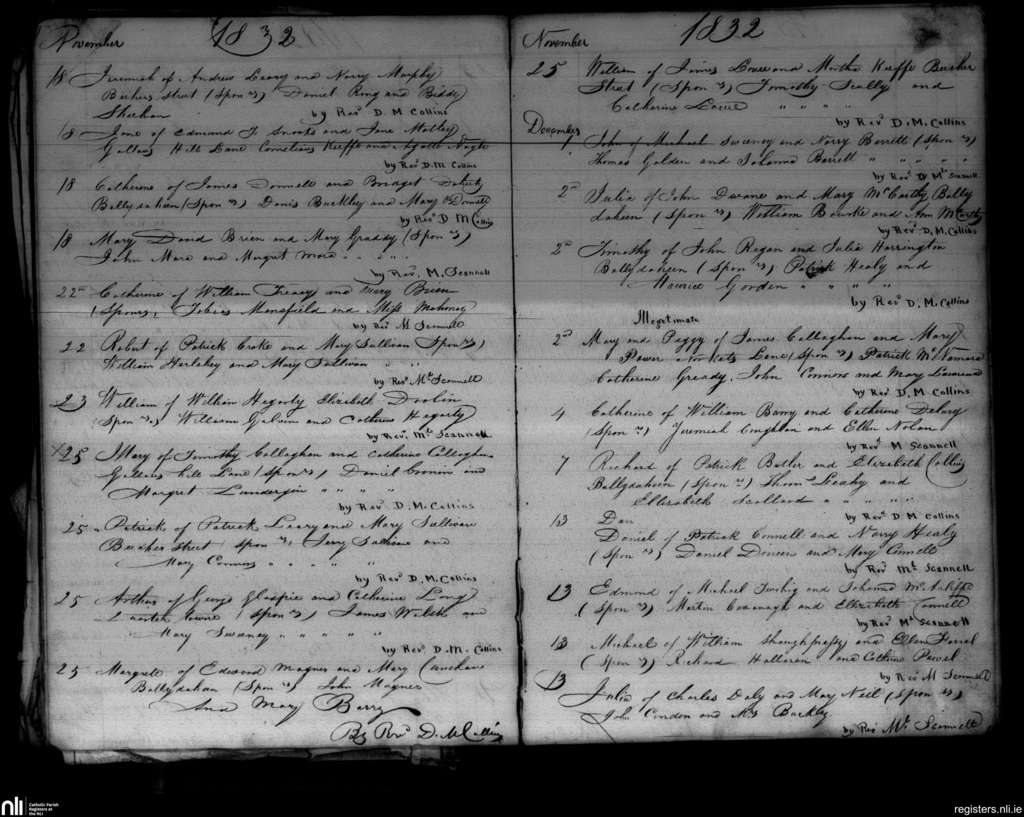 November 1832
18 Jeremiah of Andrew Leary and Norry Murphy
Beechers Street (Spon rs) Daniel Ring and Biddy
Sheehan
by Revd D. M Collins
18 Jane of Edmund T. Snooks and Jane Motley
Gallows Hill Lane Cornelius Keeffe and Nagle
by Revd D. M Collins
18 Catherine of James Donnell and Bridget
Ballydaheen (Spon rs) Denis Buckley and Mary O Donnell
by Revd D M Collins
18 Mary David Brien and Mary Graddy (Spon rs)
John Mara and Margret Mara " " " "
by Rev. M. Scannell
22 Catherine of William Treacy and Mary Breen
(Sponsrs, Tobias Mansfield and Miss Mahoney
by Rev M Scannell
22 Robert of Patrick Croke and Mary Sullivan Spon rs)
William Herlehey and Mary Sullivan " "
by Revd Mt Scannell
23 William of William Hegarty Elizabeth Doolin
(Spon rs. William and Catherine Hegarty
by Revd Mt Scannell
X25 Mary of Timmothy Callaghan and Catherine Callaghan
Gallows hill Lane (Spon rs) Daniel and
Margret " " " "
by Revd D. M. Collins
25 Patrick of Patrick Leary and Mary Sullivan
Beecher Street (Spon rs, Jerry Sullivan and
Mary Connors " " " " "
by Revd D. M. Collins
25 Arthur of George Glaspie and Catherine Long
towne (Spon rs) James Welsh and
Mary Swaney " " " " "
by Revd D. M. Collins
25 Margrate of Edward Magner and Mary
Ballydahan (Spon rs) John Magner
And Mary Barry
By Revd D. M Collins
November 1832
25 William of James and Martha Keeffe Beecher
Street (Spon rs) Timmothy Scally and
Catherine " " " "
by Revd D. M. Collins
December
1 John of Michael Swaney and Norry Barrett (Spon rs)
Thomas Golden and Johanna Barrett " " " " "
by Revd Mt Scannell
2d Julia of John Dwane and Mary McCarthy Bally
daheen (Spon rs) William Bourke and Ann McCarthy
by Revd D, M, Collins
2d Timothy of John Regan and Julia Harrington
Ballydaheen (Spon rs) Patrick Healy and
Maurice Gorden " " " "
by Revd D. M. Collins
Illegitimate
2d Mary and Peggy of James Callaghan and Mary
Power Lane (Spon rs) Patrick McNamara
Catherine Gready, John Connors and Mary
by Revd D. M. Collins
4 Catherine of William Barry and Catherine Delany
(Spon rs) Jeremiah Coughlan and Ellen Nolan
by Revd M Scannell
7 Richard of Patrick Butler and Elizabeth Collins
Ballydaheen (Spon rs) Thoms Leahy and
Elizabeth Scolland " " " "
by Revd D. M Collins
13 Dan
Daniel of Patrick Connell and Norry Healy
(Spon rs) Daniel Doneen and Mary Connell
by Rev Mt Scannell
13 Edmond of Michael Twohig and Johanna McAuliffe
(Spon rs) Martin Cavanagh and Elizabeth Connell
by Rev Mt Scannell
13 Michael of William Shaughnessy and Ellen Farrel
(Spon rs) Richard Halloran and Catherine Powel
by Rev M Scannell
13 Julia of Charles Daly and Mary Neil (Spon rs)
John Condon and Mrs Buckley
by Rev Mt Scannell
nli Catholic Parish
Registers at
the NLI
registers.nli.ie